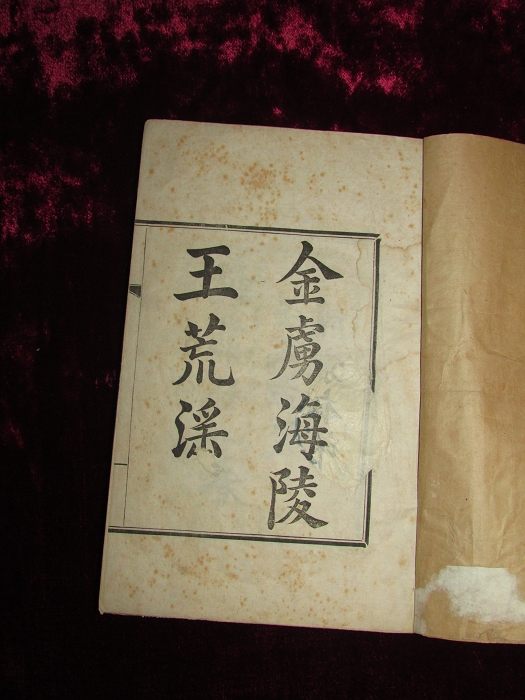 金虜海陵
王荒淫